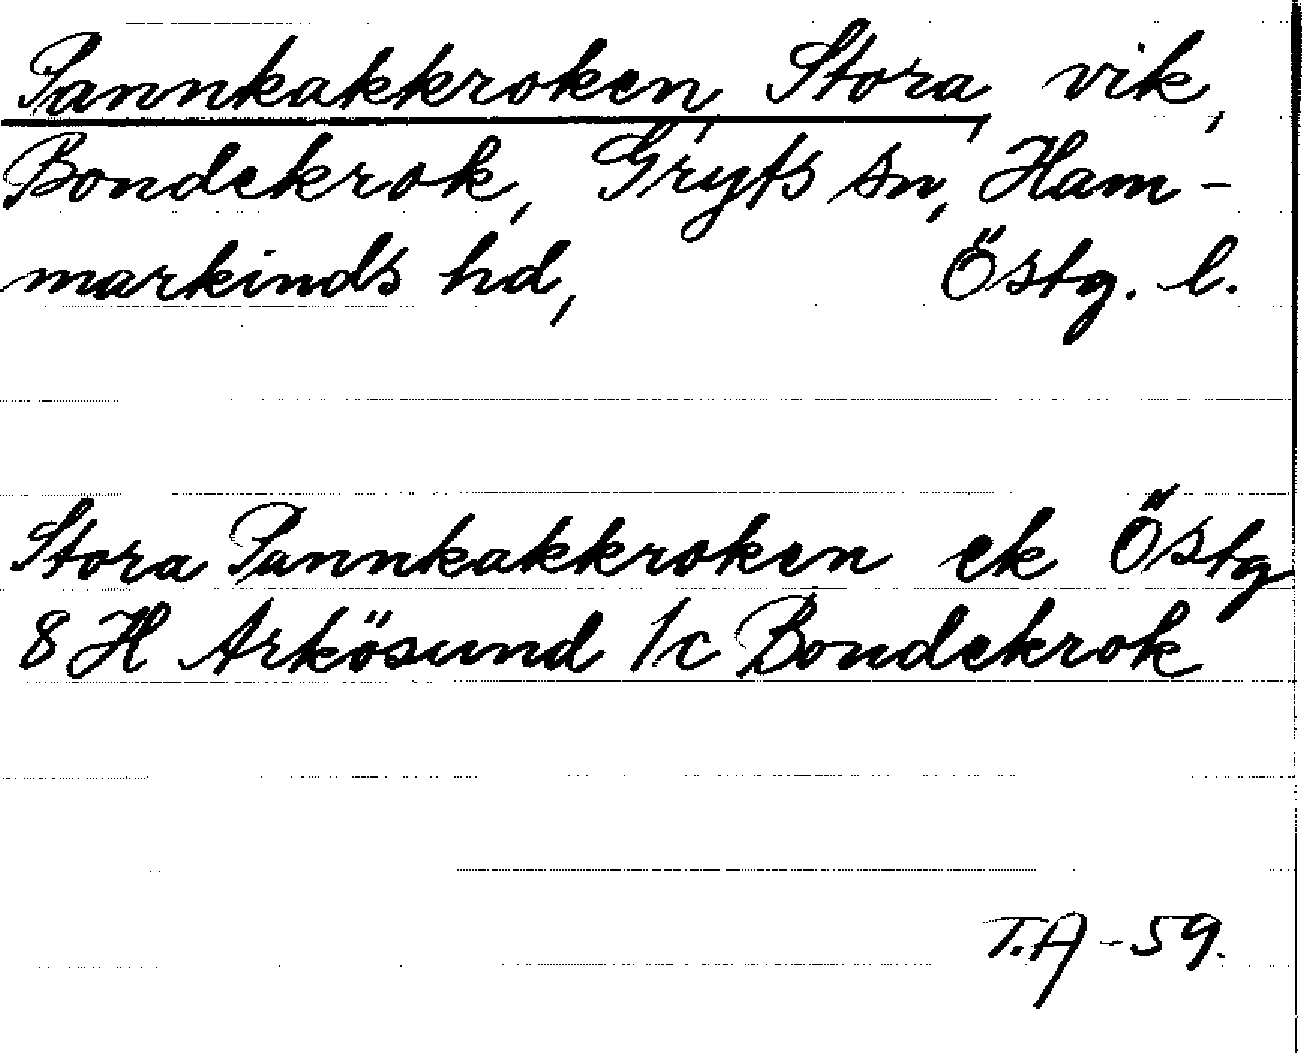 Pannkakkroken, Stora, vik,
Bondekrok, Gryts sn, Ham-
markinds hd, Östg. l.
Stora Pannkakkroken ek Östg
8 H Arkösund 1c Bondekrok
T.A -59.